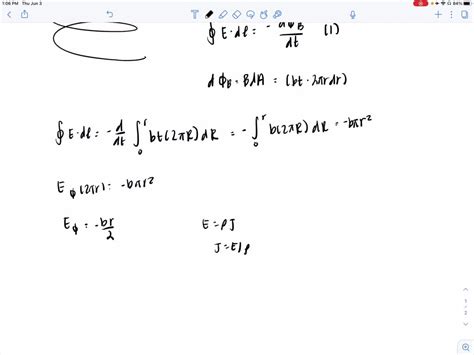 1:06 PM Thu Jun 3
84%
∮ E·dl = - dΦB/dt (1)
dΦB = BdA = (bt · 2πrdr)
∮ E·dl = - d/dt ∫₀ʳ bt(2πR)dR = - ∫₀ʳ b(2πR)dR = -bπr²
Eφ(2πr) = -bπr²
Eφ = -br/2
E = ρJ
J = E/ρ
1
2